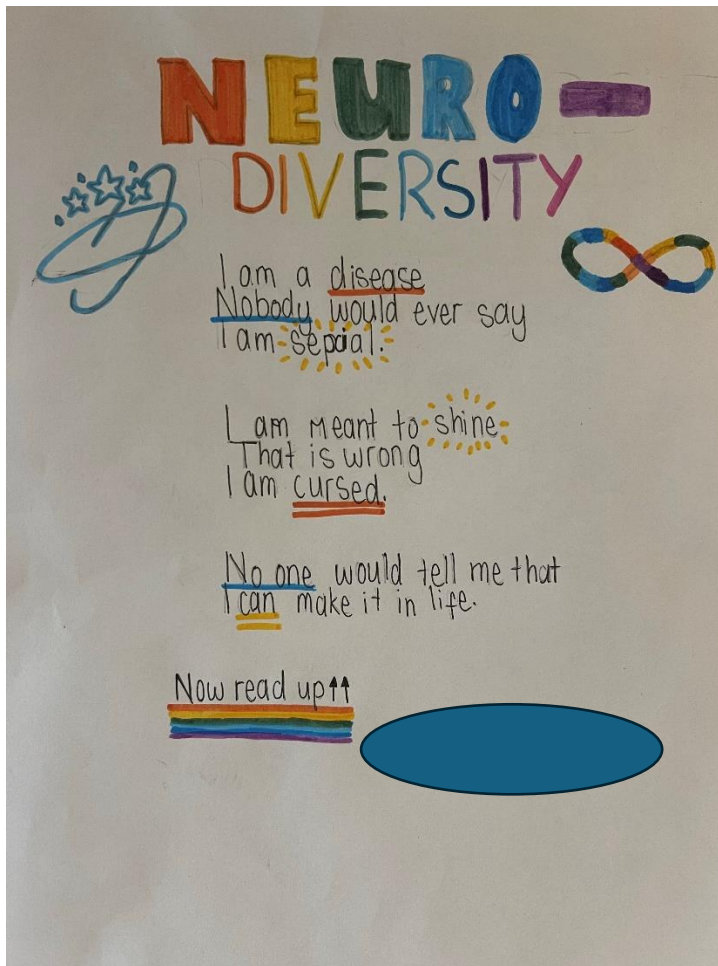 NEURO-
DIVERSITY
I am a disease
Nobody would ever say
I am sepcial.
I am meant to shine
That is wrong
I am cursed.
No one would tell me that
I can make it in life.
Now read up↑↑